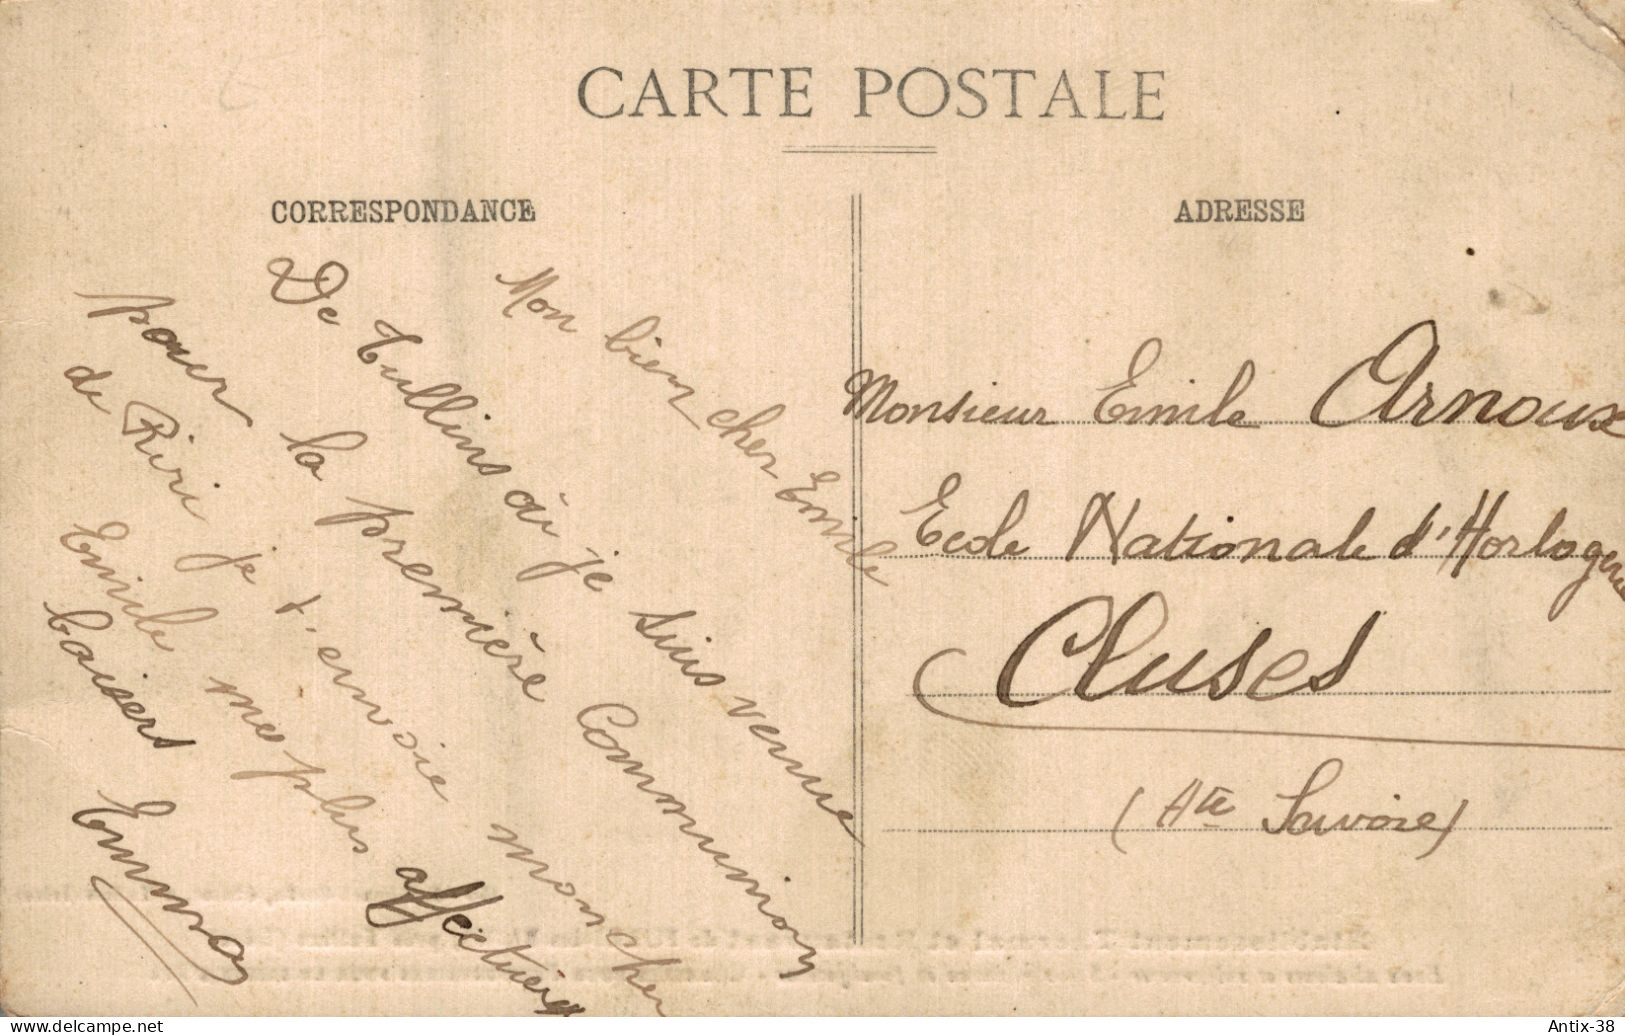 CARTE POSTALE
CORRESPONDANCE
ADRESSE
Mon bien cher Emile
De Tullins où je suis venue
pour la première Communion
de Riri je t'envoie mon cher
Emile mes plus affectueux
baisers
Emma
Monsieur Emile Arnoux
Ecole Nationale d'Horlogerie
Cluses
(Hte Savoie)
delcampe.net
Antix-38